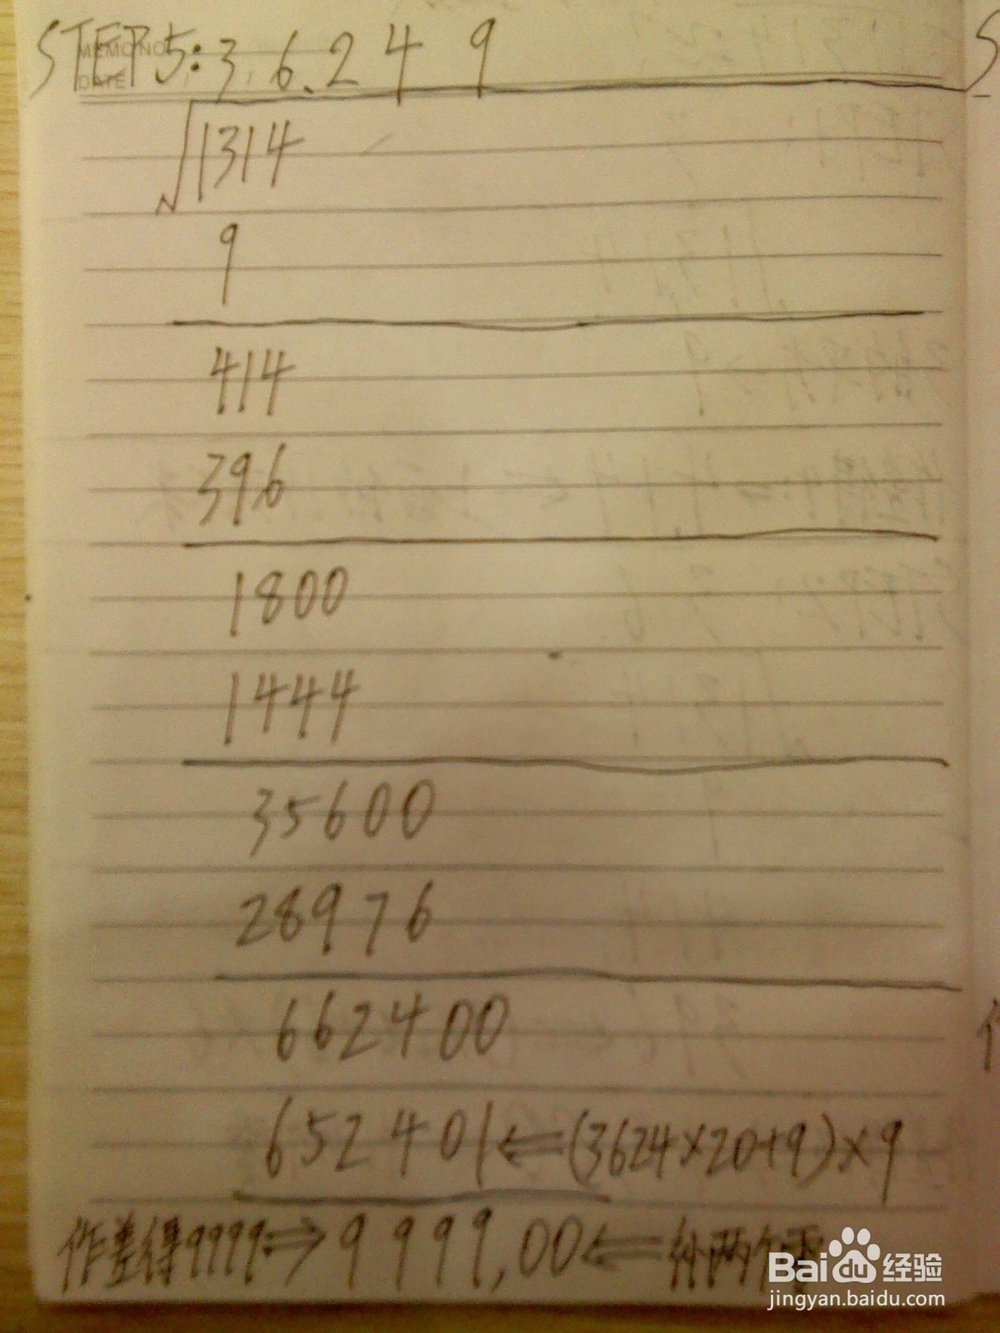 MEMO NO.
DATE
STEP5:3 6.2 4 9
√1314
9
414
396
1800
1444
35600
28976
662400
652401⇐(3624×20+9)×9
作差得9999⇒9999,00⇐补两个零
Baidu经验
jingyan.baidu.com